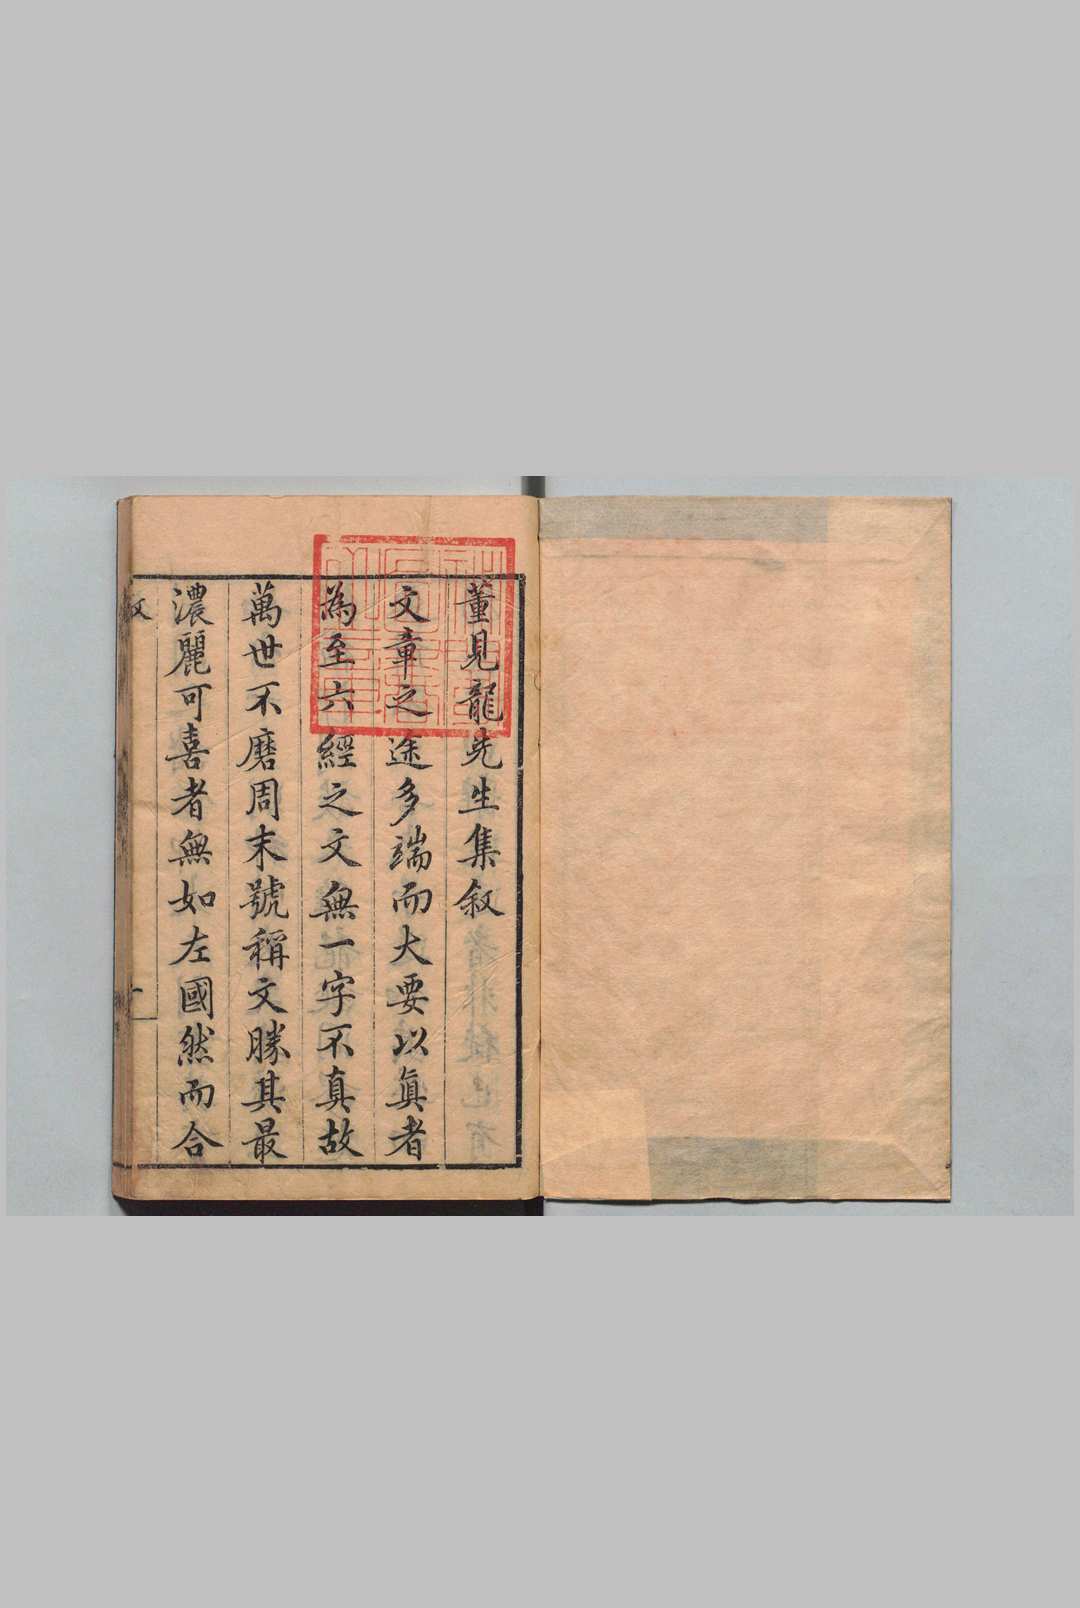 董見龍先生集敘
文章之途多端而大要以真者
為至六經之文無一字不真故
萬世不磨周末號稱文勝其最
濃麗可喜者無如左國然而合